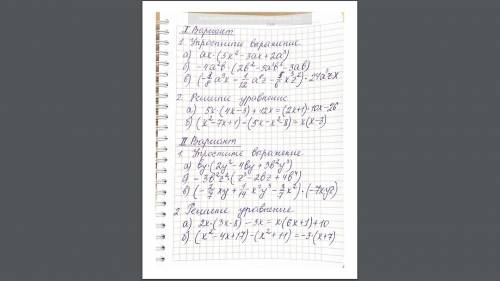 I Вариант
1. Упростите выражение
а) ax·(5x²-3ax+2a³)
б) -4a²b·(2b²-3a²b²-3ab)
в) (-1/8 a³x - 1/12 a²z - 5/6 x³z²)·24a²zx
2. Решите уравнение
а) 5x·(4x-3)+12x=(2x+1)·10x-26
б) (x²-7x+1)-(5x-x²-8)=x(x-3)
II Вариант
1. Упростите выражение
а) by·(2y²-4by+3b²y³)
б) -3b²z³(z²-2bz+4b⁴)
в) (-1/7 xy+1/14 x²y³-3/7 x²)·(-7xyz)
2. Решите уравнение
а) 2x·(3x-8)-3x=x·(6x+1)+10
б) (x²-4x+17)-(x²+11)=-3·(x+7)